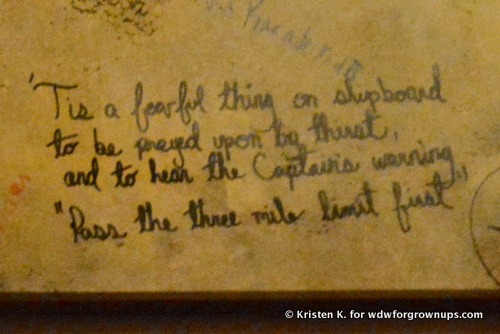 'Tis a fearful thing on shipboard
to be preyed upon by thirst,
and to hear the Captain's warning,
"Pass the three mile limit first"
© Kristen K. for wdwforgrownups.com